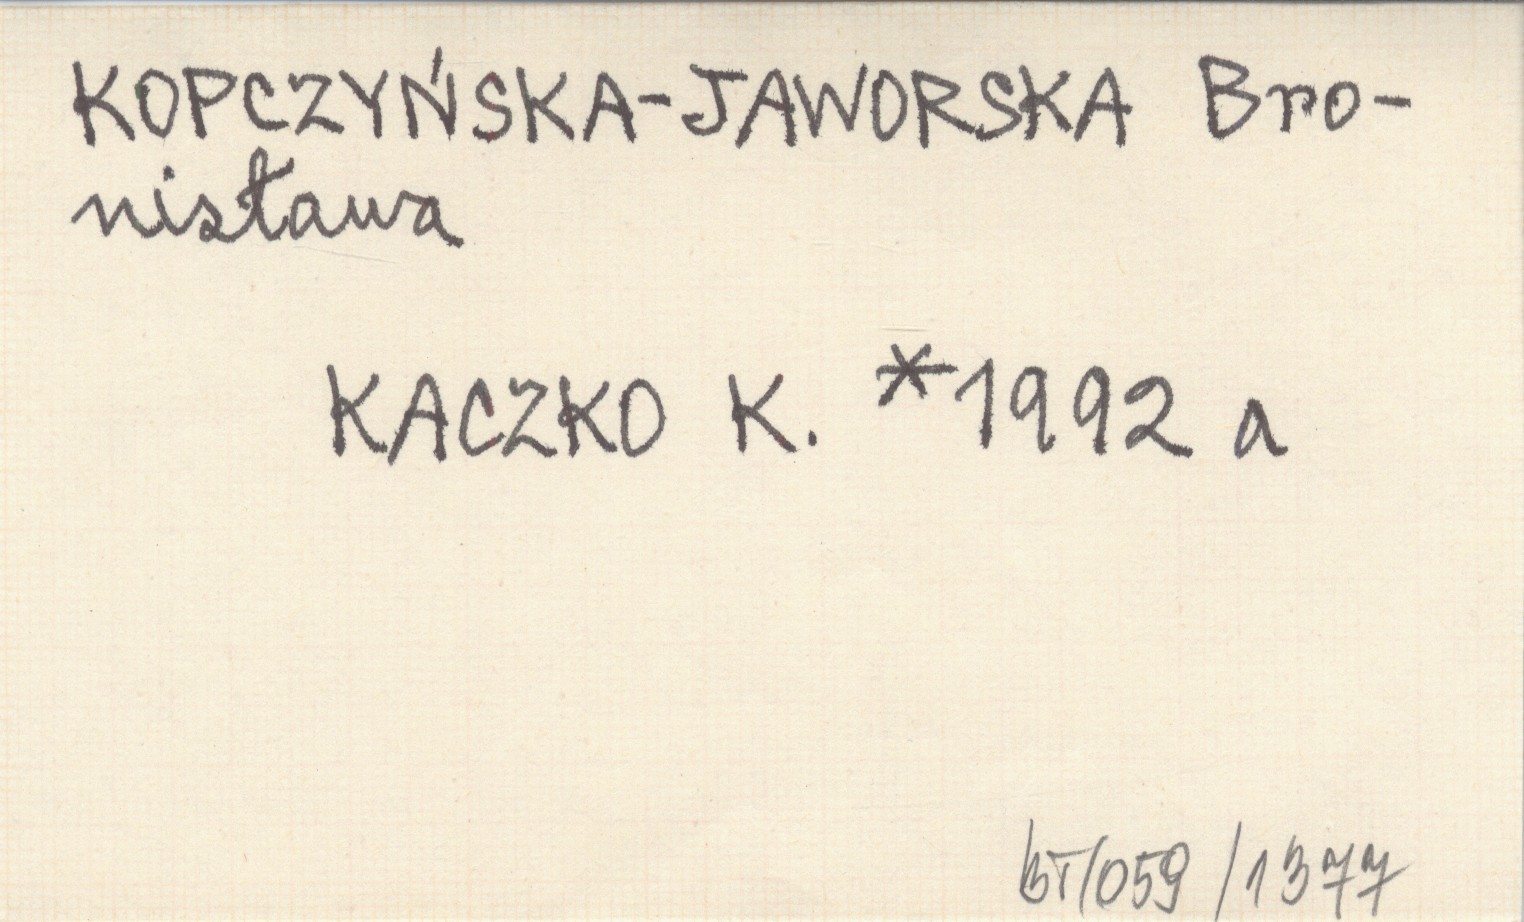 KOPCZYŃSKA-JAWORSKA Bro-
nisława
KACZKO K. *1992 a
BT/059/1377